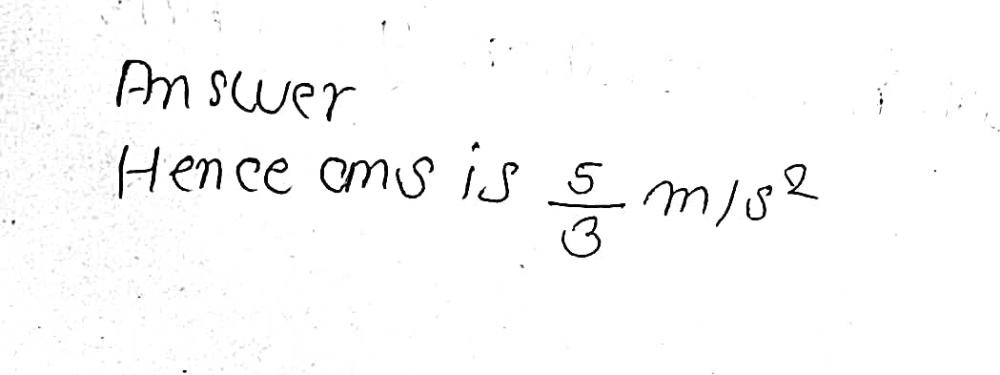 Answer
Hence ans is 5/3 m/s²